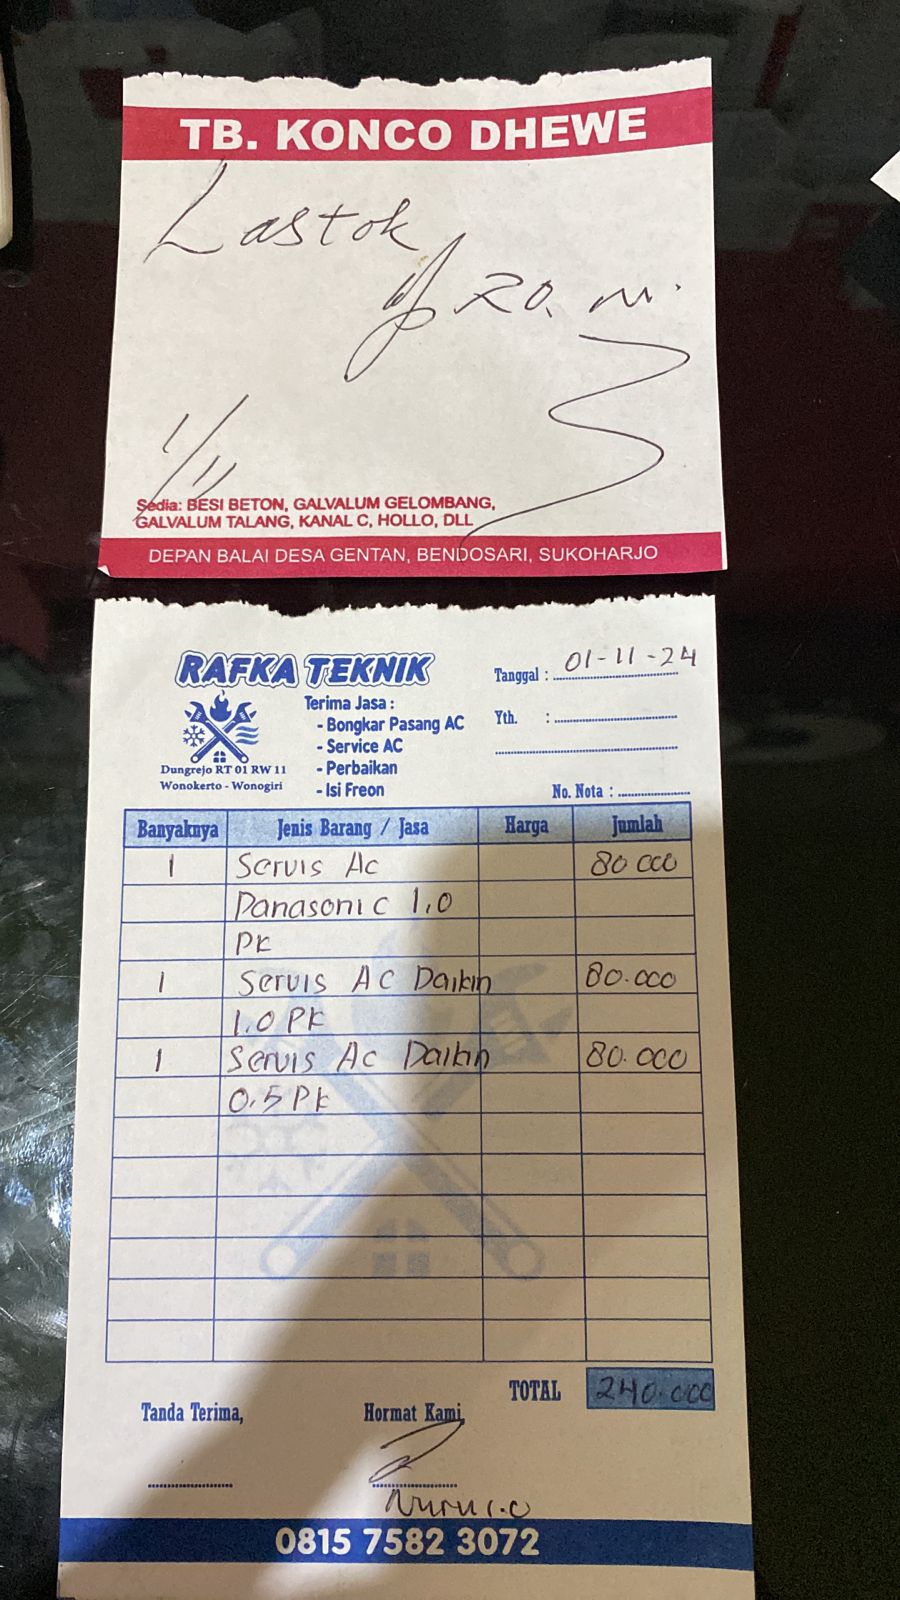 TB. KONCO DHEWE
Lastok
20. m.
1/11
Sedia: BESI BETON, GALVALUM GELOMBANG,
GALVALUM TALANG, KANAL C, HOLLO, DLL
DEPAN BALAI DESA GENTAN, BENDOSARI, SUKOHARJO
RAFKA TEKNIK
Terima Jasa :
- Bongkar Pasang AC
- Service AC
- Perbaikan
- Isi Freon
Dungrejo RT 01 RW 11
Wonokerto - Wonogiri
Tanggal : 01-11-24
Yth. :
No. Nota :
Banyaknya Jenis Barang / Jasa Harga Jumlah
1 Servis Ac 80 000
Panasonic 1,0
PK
1 Servis AC Daikin 80.000
1.0 PK
1 Servis Ac Daikin 80.000
0,5 PK
TOTAL 240.000
Tanda Terima, Hormat Kami,
0815 7582 3072